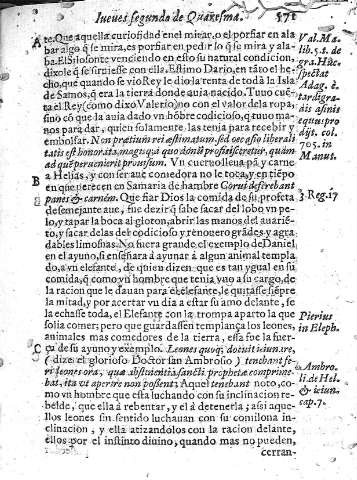 Iueues segunda de Quaresma. 571
A te. Que aquella curiosidad en el mirar, o el porfiar en ala
bar algo q̃ se mira, es porfiar en pedir lo q̃ se mira y ala-
ba. El Silosonte venciendo en esto su natural condicion,
dixole q̃ se siruiesse con ella. Estimo Dario, en tãto el he-
cho, que quando se vio Rey le dio la renta de toda la Isla
de Samos, q̃ era la tierra donde auia nacido. Tuuo cuẽ-
ta el Rey (como dixo Valerio) no con el valor de la ropa,
sino cõ que la auia dado vn hõbre codicioso, q̃ tuuo ma-
nos para dar, quien solamente las tenia para recebir y
embolsar. Non pretiũ rei estimatum, sed
est honorata, magis quã
peruenirit Vn cueruo lleua pã, y carne
B a Helias, y con ser aue comedora no le toca, y en tiẽpo
en que perecen en Samaria de hambre Corui deferebant
panes & carnem. Que fiar Dios la comida de su profeta
de semejante aue, fue dezir q̃ sabe sacar del lobo vn pe-
lo, y tapar la boca al gloton, abrir las manos del auariẽ-
to, y sacar delas del codicioso y renouero grãdes y agra
dables limosnas. No fuera grande el exemplo de Daniel
en el ayuno, si enseñara à ayunar á algun animal templa
do, a vn elefante, de quien dizen que es tan ygual en su
comida, q̃ como vn hombre que tenia vno a su cargo, de
la racion que le dauan para el elefante, le quitasse siẽpre
la mitad, y por acertar vn dia a estar su amo delante, se
la echasse toda, el Elefante con la trompa aparto la que
solia comer; pero que guardassen templança los leones,
animales mas comedores de la tierra, essa fue la fuer-
C ça de su ayuno y exemplo. Leones quoque docuit ieiunare,
( dize el glorioso Doctor san Ambrosio ) tenebant fe-
ri leones ora, quæ abstinentia sancti prophetæ comprime-
bat, ita vt aperire non possent: Aquel tenebant noto, co-
mo vn hombre que esta luchando con su inclinacion re-
belde, que ella à rebentar, y el à detenerla; assi aque-
llos leones sin sentido luchauan con su comilona in-
clinacion, y ella atizandolos con la racion delante,
ellos por el instinto diuino, quando mas no pueden,
cerran-
Val. Ma-
lib. 5. t. de
gra. Hũc
spectat
Adag. è
tardigra-
dis asinis
equus pro
dijt. col.
705. in
Manut.
3. Reg. 17
Pierius
in Eleph.
Ambro.
li. de Hel.
& ieiun.
cap. 7.